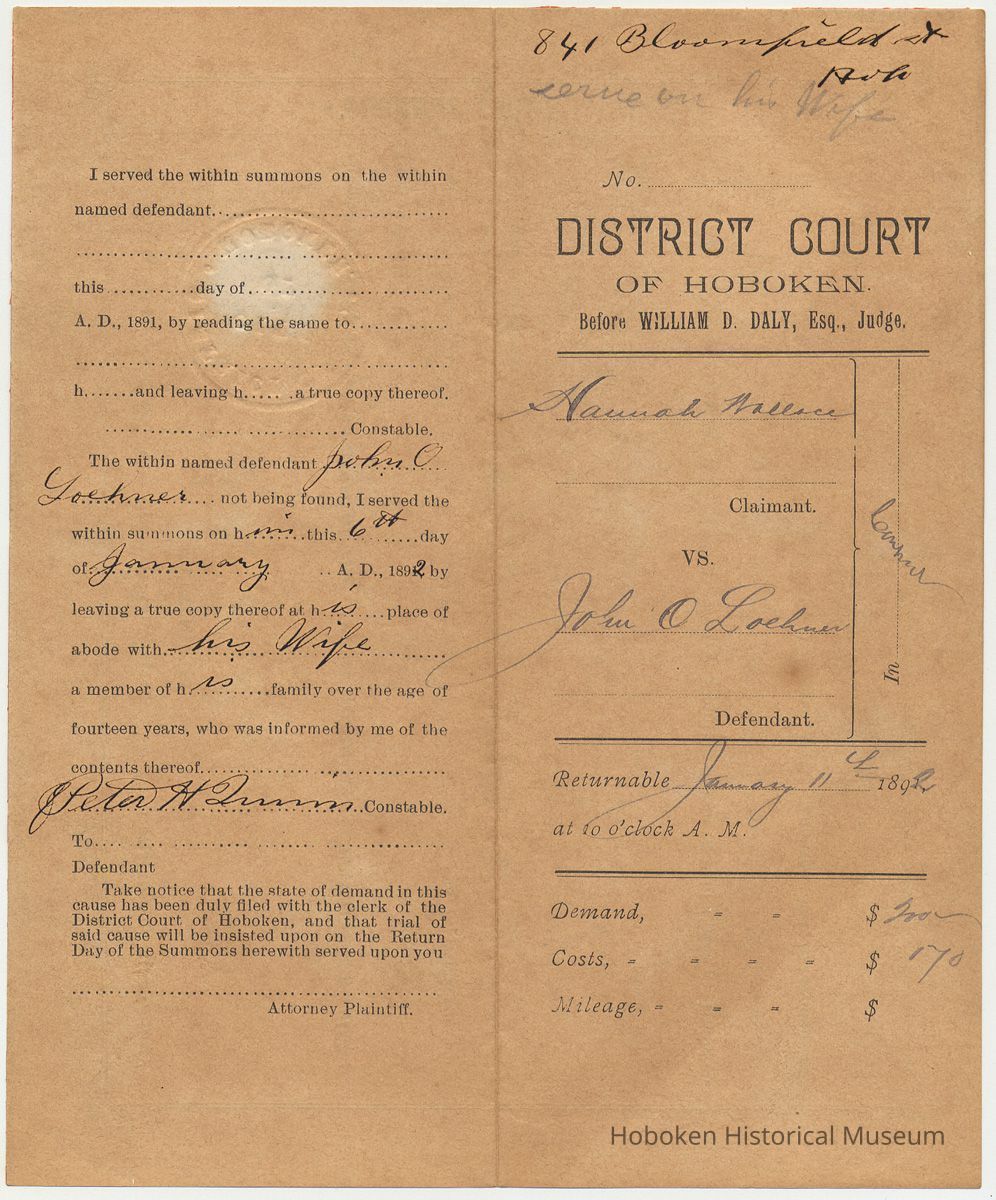 I served the within summons on the within
named defendant
this day of
A. D., 1891, by reading the same to
h and leaving h a true copy thereof.
Constable.
The within named defendant John O
Loehner not being found, I served the
within summons on him this 6th day
of January A. D., 1892 by
leaving a true copy thereof at his place of
abode with his Wife
a member of his family over the age of
fourteen years, who was informed by me of the
contents thereof.
Peter H Constable.
To
Defendant
Take notice that the state of demand in this
cause has been duly filed with the clerk of the
District Court of Hoboken, and that trial of
said cause will be insisted upon on the Return
Day of the Summons herewith served upon you
Attorney Plaintiff.
841 Bloomfield st
Hob
serve on his Wife
No.
DISTRICT COURT
OF HOBOKEN.
Before WILLIAM D. DALY, Esq., Judge.
Hannah Wallace
Claimant.
VS.
John O Loehner
Defendant.
In
Returnable January 11th 1892
at 10 o'clock A. M.
Demand, $ 200
Costs, $ 170
Mileage, $
Hoboken Historical Museum